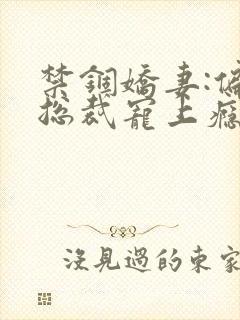 禁錮嬌妻:偏
總裁寵上癮
沒見過的東家